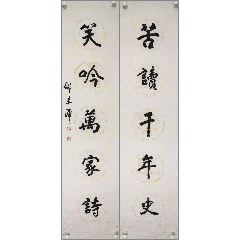 苦讀千年史
笑吟萬家詩